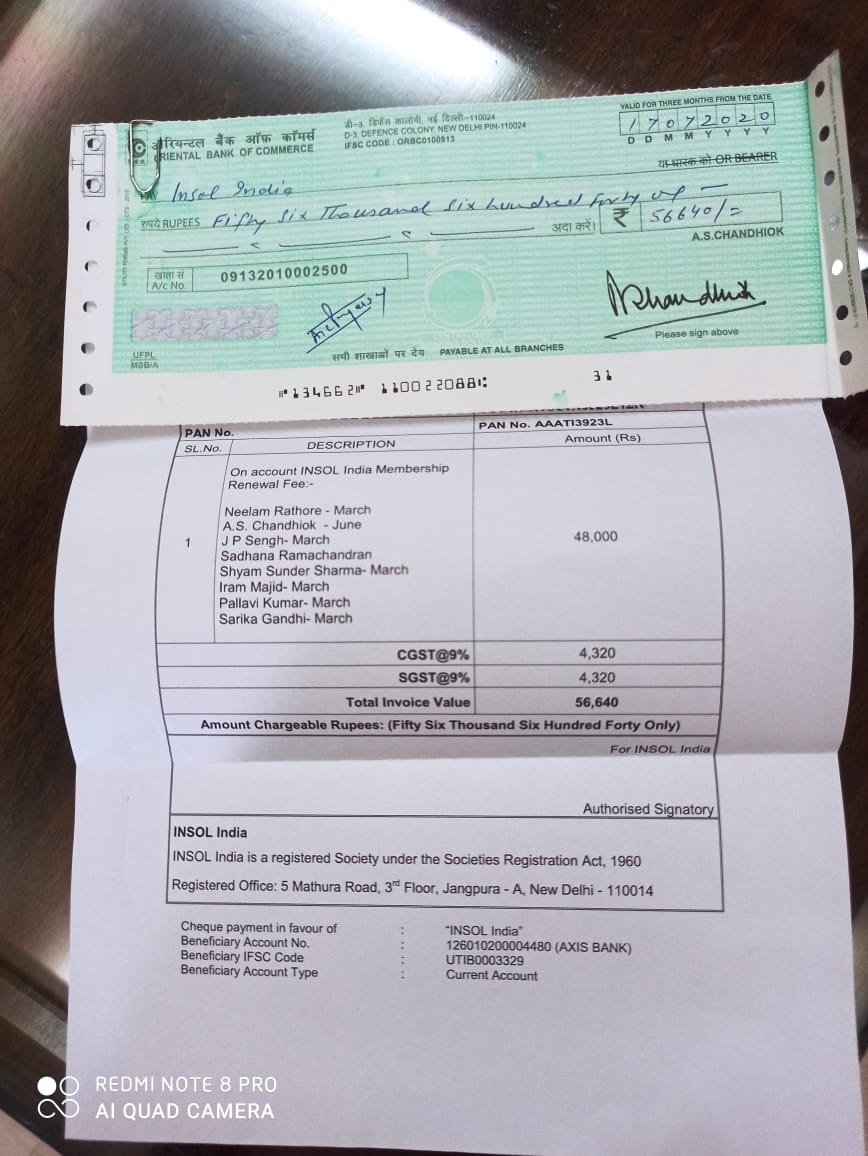 ओरियन्टल बैंक ऑफ़ कॉमर्स
ORIENTAL BANK OF COMMERCE
डी-3, डिफेंस कालोनी, नई दिल्ली-110024
D-3, DEFENCE COLONY, NEW DELHI PIN-110024
IFSC CODE : ORBC0100913
VALID FOR THREE MONTHS FROM THE DATE
17072020
D D M M Y Y Y Y
या धारक को OR BEARER
PAY Insol India
रुपये RUPEES Fifty Six Thousand Six hundred forty
अदा करें। ₹ 56640/=
A.S.CHANDHIOK
खाता सं
A/c No. 09132010002500
Please sign above
UFPL
MSB/A
सभी शाखाओं पर देय PAYABLE AT ALL BRANCHES
⑈134662⑈ 110022088⑆ 31
PAN No. PAN No. AAATI3923L
SL.No. DESCRIPTION Amount (Rs)
On account INSOL India Membership
Renewal Fee:-
Neelam Rathore - March
A.S. Chandhiok - June
1 J P Sengh- March 48,000
Sadhana Ramachandran
Shyam Sunder Sharma- March
Iram Majid- March
Pallavi Kumar- March
Sarika Gandhi- March
CGST@9% 4,320
SGST@9% 4,320
Total Invoice Value 56,640
Amount Chargeable Rupees: (Fifty Six Thousand Six Hundred Forty Only)
For INSOL India
Authorised Signatory
INSOL India
INSOL India is a registered Society under the Societies Registration Act, 1960
Registered Office: 5 Mathura Road, 3rd Floor, Jangpura - A, New Delhi - 110014
Cheque payment in favour of : "INSOL India"
Beneficiary Account No. : 126010200004480 (AXIS BANK)
Beneficiary IFSC Code : UTIB0003329
Beneficiary Account Type : Current Account
REDMI NOTE 8 PRO
AI QUAD CAMERA